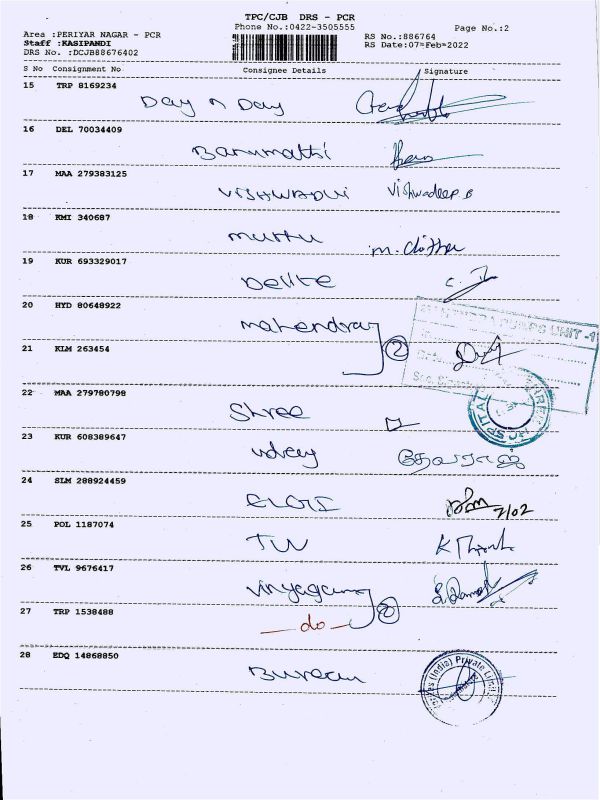 TPC/CJB DRS - PCR
Phone No.:0422-3505555
Page No.:2
Area :PERIYAR NAGAR - PCR
RS No.:886764
Staff :KASIPANDI
RS Date:07=Feb=2022
DRS No. :DCJB88676402
S No Consignment No Consignee Details Signature
15 TRP 8169234
Day n Day
16 DEL 70034409
Banumathi
17 MAA 279383125
VISHWADVI Vishwadeep B
18 KMI 340687
muttu m.
19 KUR 693329017
Delite
20 HYD 80648922
mahendra
PUMPS UNIT -1
21 KLM 263454
2
22 MAA 279780798
SPITAL
Shree
23 KUR 608389647
udhey தேவராஜ்
24 SLM 288924459
ELGI 7/02
25 POL 1187074
TW K
26 TVL 9676417
Vinyagam
27 TRP 1538488
-do-
28 EDQ 14868850
Bureau
(India) Private Limited